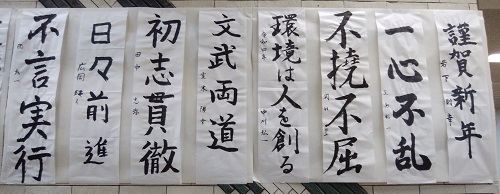 謹賀新年
一心不乱
不撓不屈
環境は人を創る
文武両道
初志貫徹
日々前進
不言実行